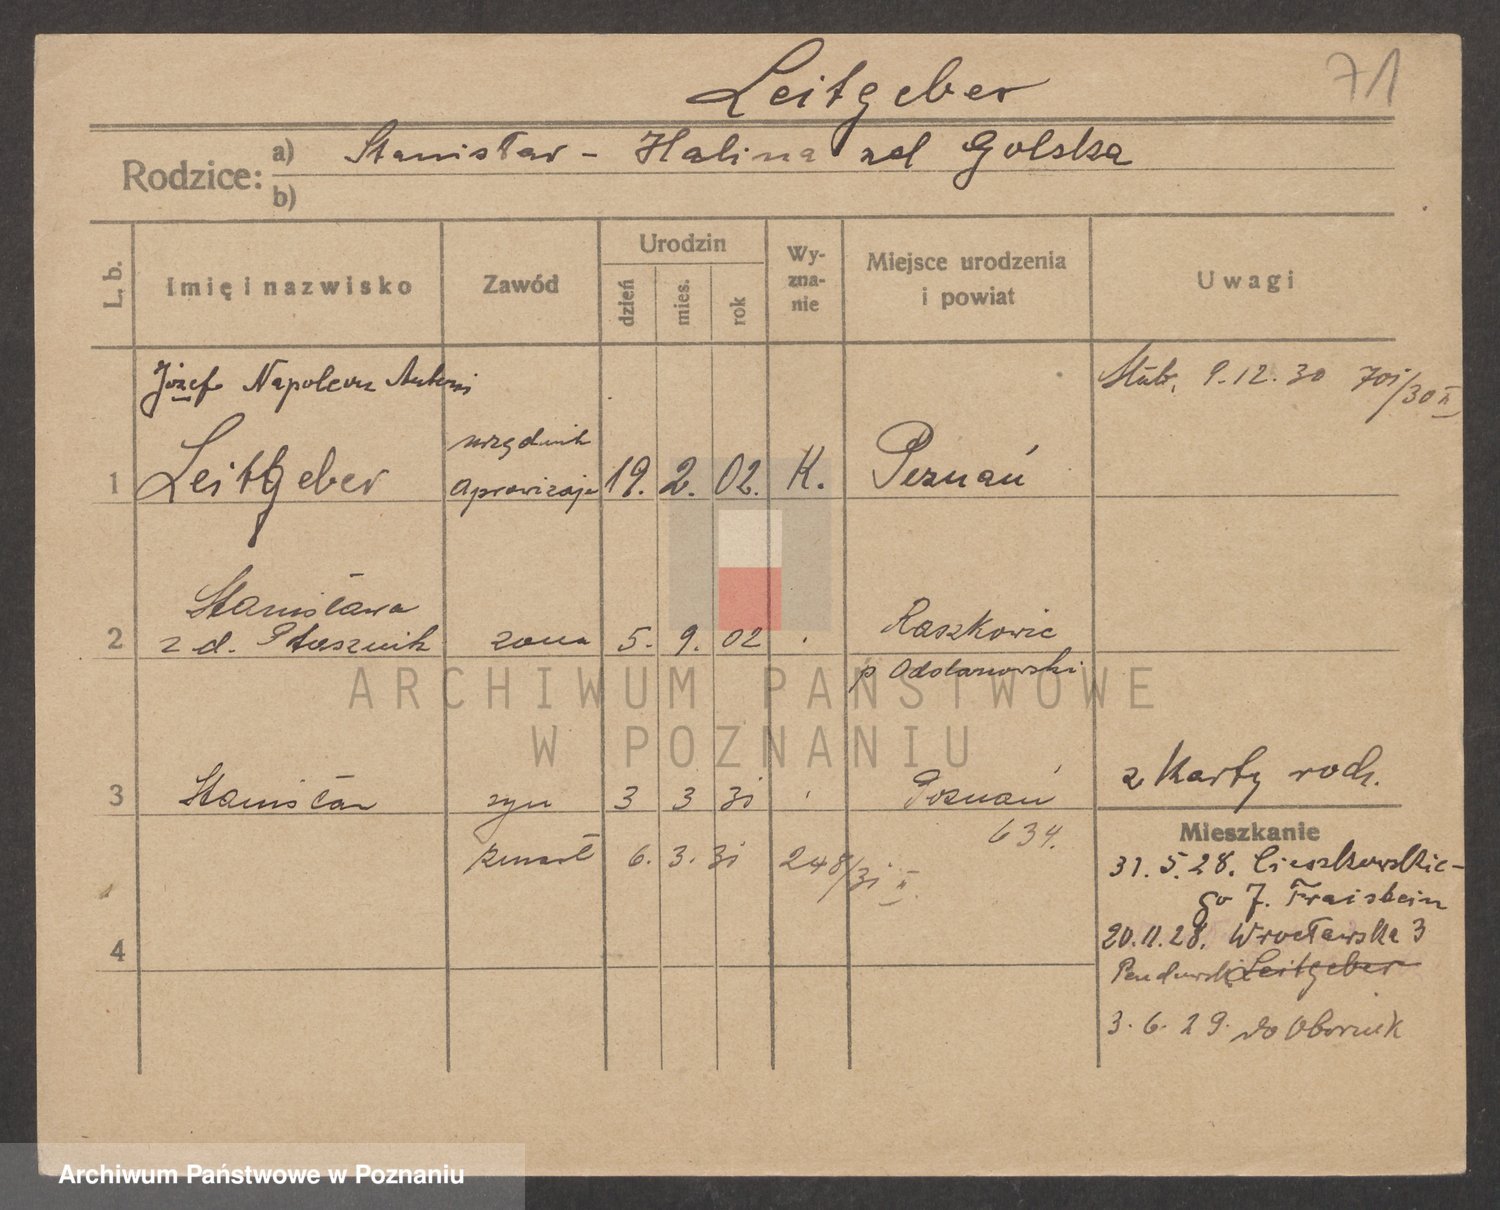 Leitgeber
71
Rodzice:
a) Stanisław - Halina zd Golska
b)
L. b.
Imię i nazwisko
Zawód
Urodzin
dzień
mies.
rok
Wy-
zna-
nie
Miejsce urodzenia
i powiat
Uwagi
Józef Napoleon Antoni
Ślub. 9.12.30 701/30 II
1 Leitgeber urzędnik aprowizacji 19. 2. 02. K. Poznań
Stanisława
2 z d. Ptasznik żona 5. 9. 02 Raszkowie
p Odolanowski
3 Stanisław syn 3 3 31 Poznań
z Karty rodz.
zmarł 6. 3. 31 248/31 II 634.
Mieszkanie
31. 5. 28. Cieszkowskie-
go 7. Fraisbein
20.11.28. Wrocławska 3
4
Leitgeber
3. 6. 29. do Obornik
ARCHIWUM PAŃSTWOWE
W POZNANIU
Archiwum Państwowe w Poznaniu